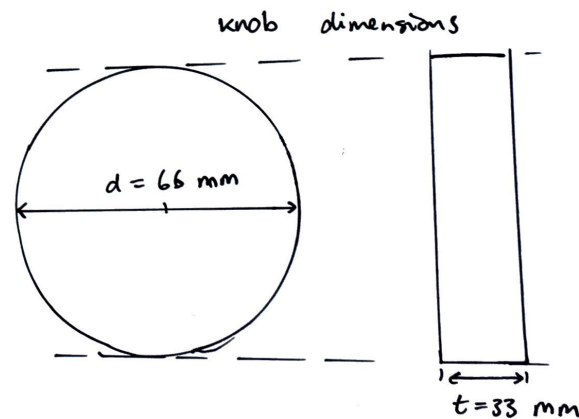 knob dimensions
d = 66 mm
t = 33 mm